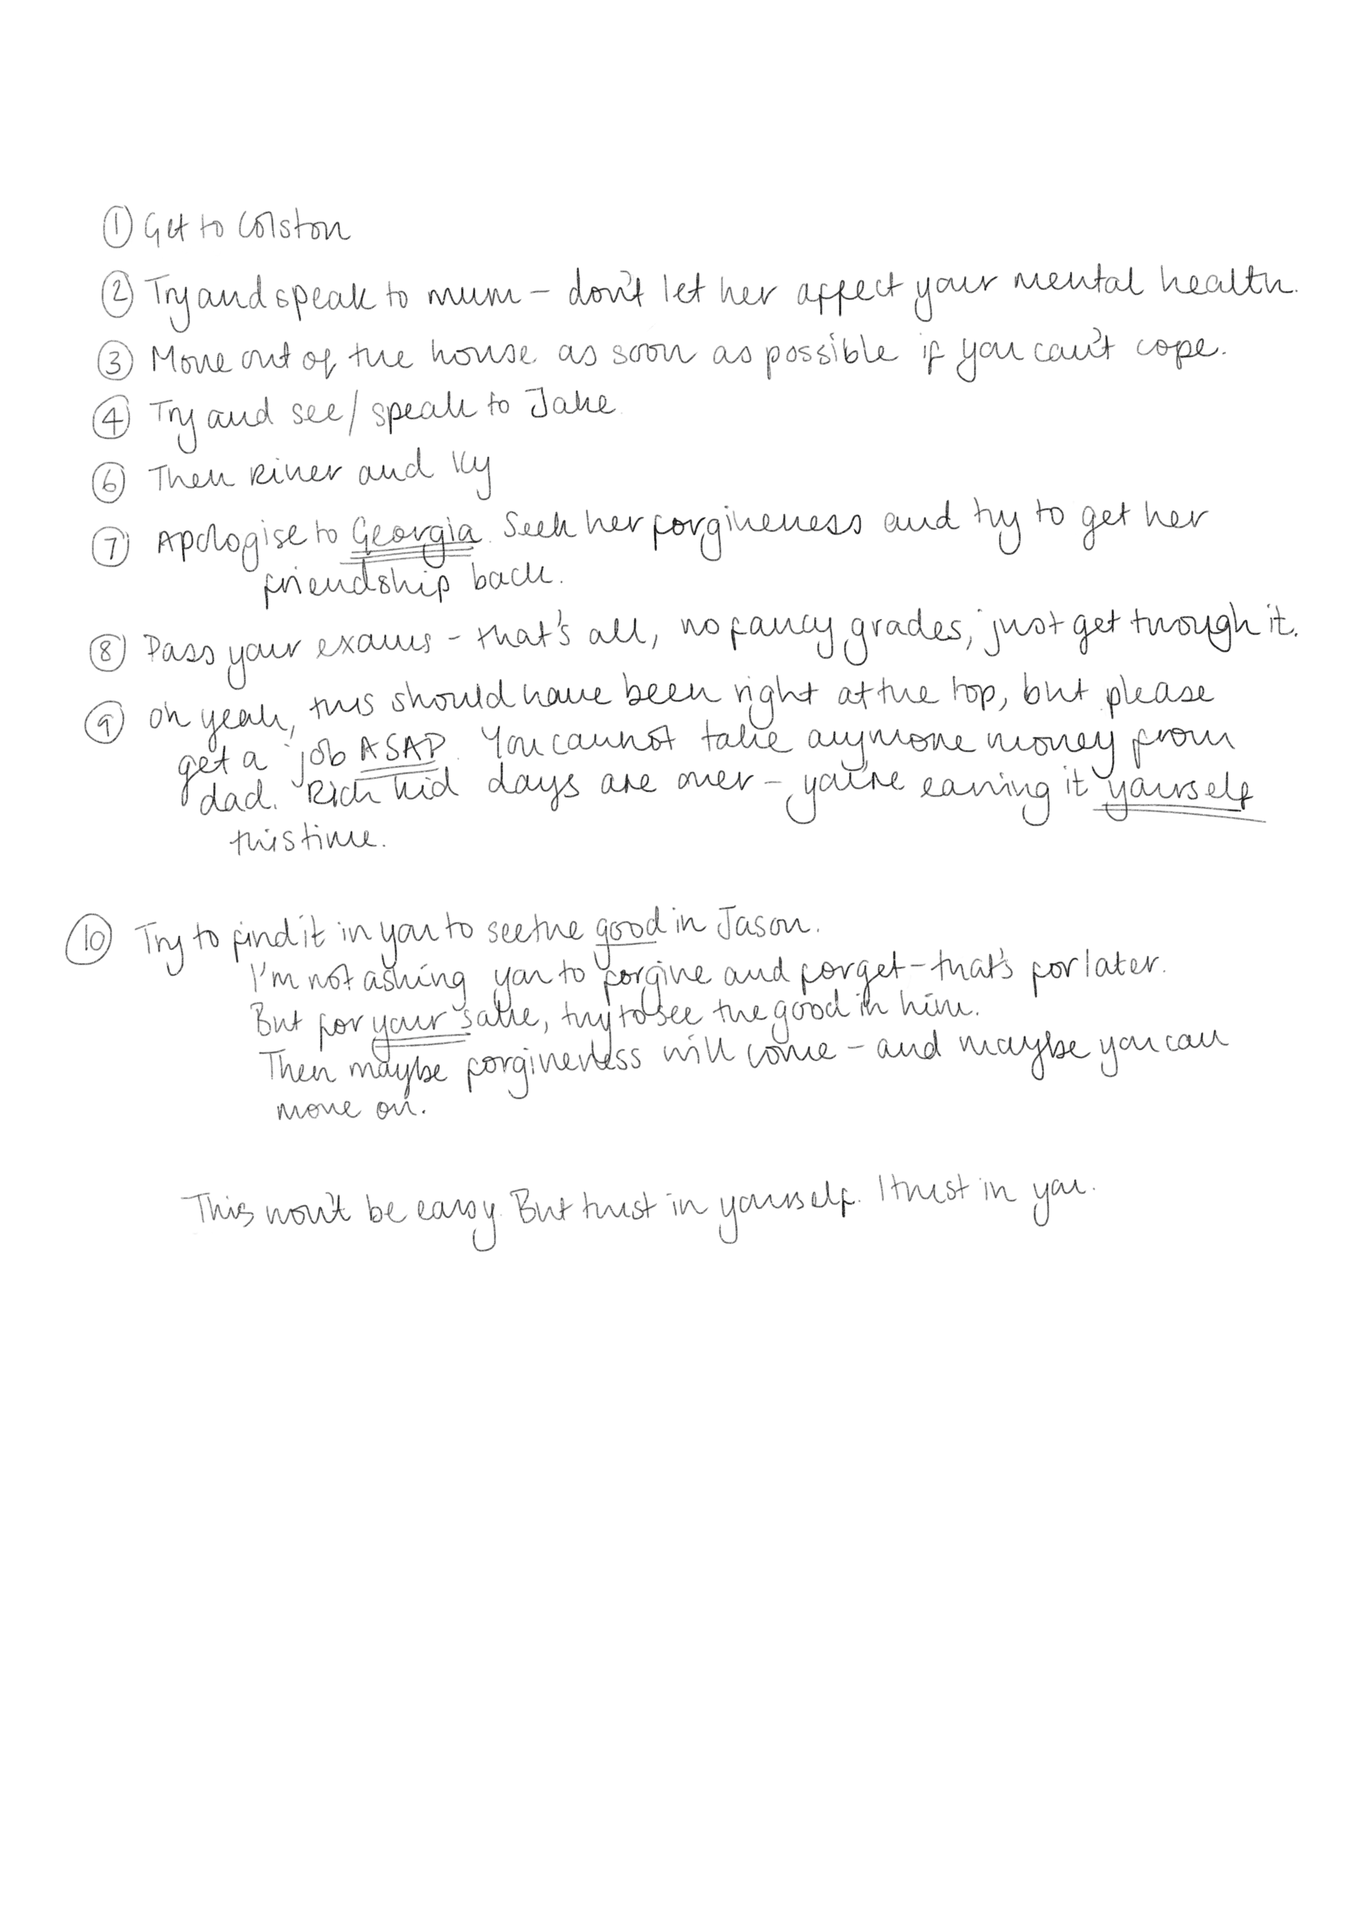 ① Get to Colston
② Try and speak to mum – don't let her affect your mental health.
③ Move out of the house as soon as possible if you can't cope.
④ Try and see/speak to Jake
⑥ Then River and Ky
⑦ Apologise to Georgia. Seek her forgiveness and try to get her
friendship back.
⑧ Pass your exams – that's all, no fancy grades, just get through it.
⑨ Oh yeah, this should have been right at the top, but please
get a job ASAP. You cannot take anymore money from
dad. Rich kid days are over – you're earning it yourself
this time.
⑩ Try to find it in you to see the good in Jason.
I'm not asking you to forgive and forget – that's for later.
But for your sake, try to see the good in him.
Then maybe forgiveness will come – and maybe you can
move on.
This won't be easy. But trust in yourself. I trust in you.